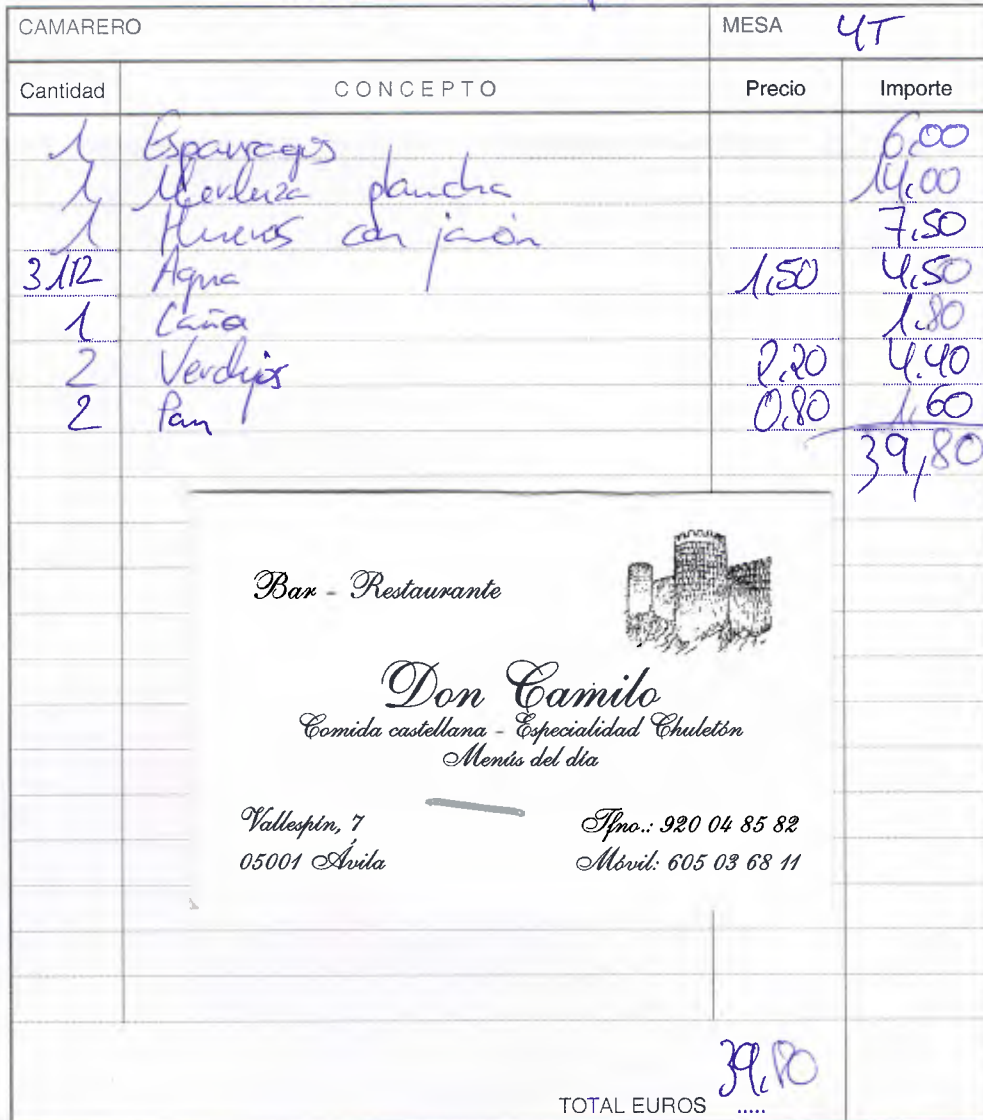 CAMARERO MESA 4T
Cantidad CONCEPTO Precio Importe
1 Esparragos 6,00
1 Merluza plancha 14,00
1 Huevos con jamón 7,50
3 1/2 Agua 1,50 4,50
1 Caña 1.80
2 Verdejos 2,20 4.40
2 Pan 0,80 1,60
39,80
Bar - Restaurante
Don Camilo
Comida castellana - Especialidad Chuletón
Menús del día
Vallespín, 7 Tfno.: 920 04 85 82
05001 Ávila Móvil: 605 03 68 11
TOTAL EUROS 39,80